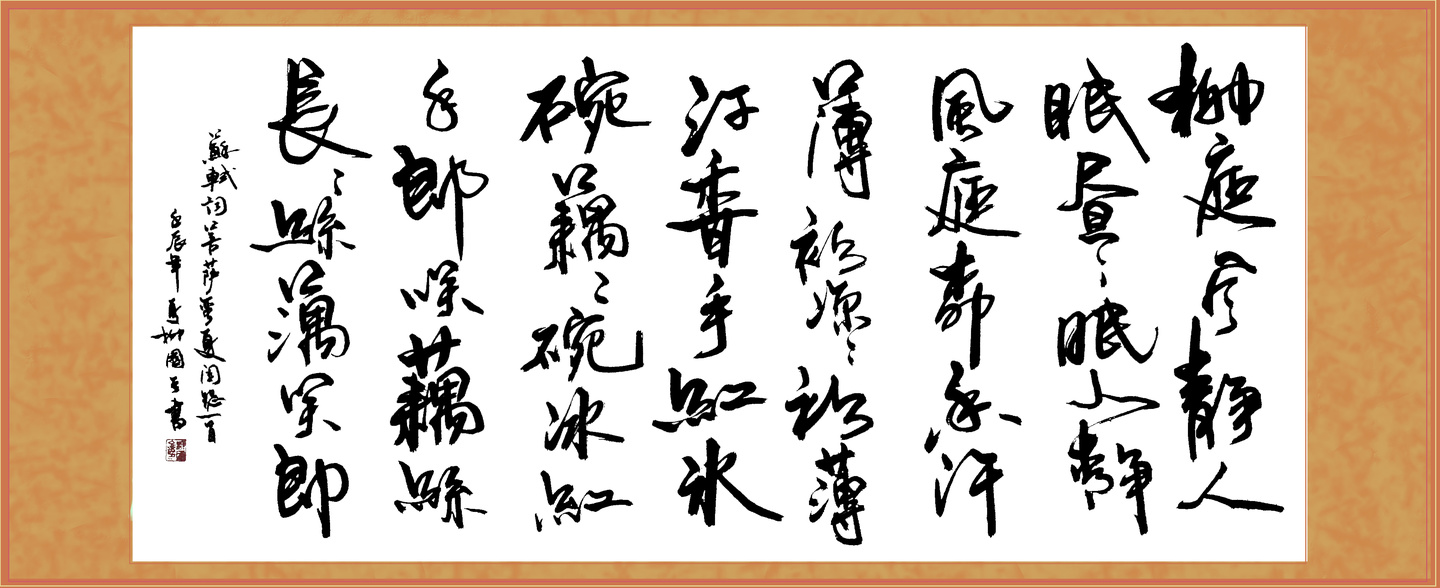 柳庭風靜人
眠晝〻眠人靜
風庭柳香汗
薄衫凉〻衫薄
汗香手紅冰
碗藕〻碗冰紅
手郎笑藕絲
長〻絲藕笑郎
蘇軾詞菩薩蠻夏閨怨一首
壬辰年夏柳國書